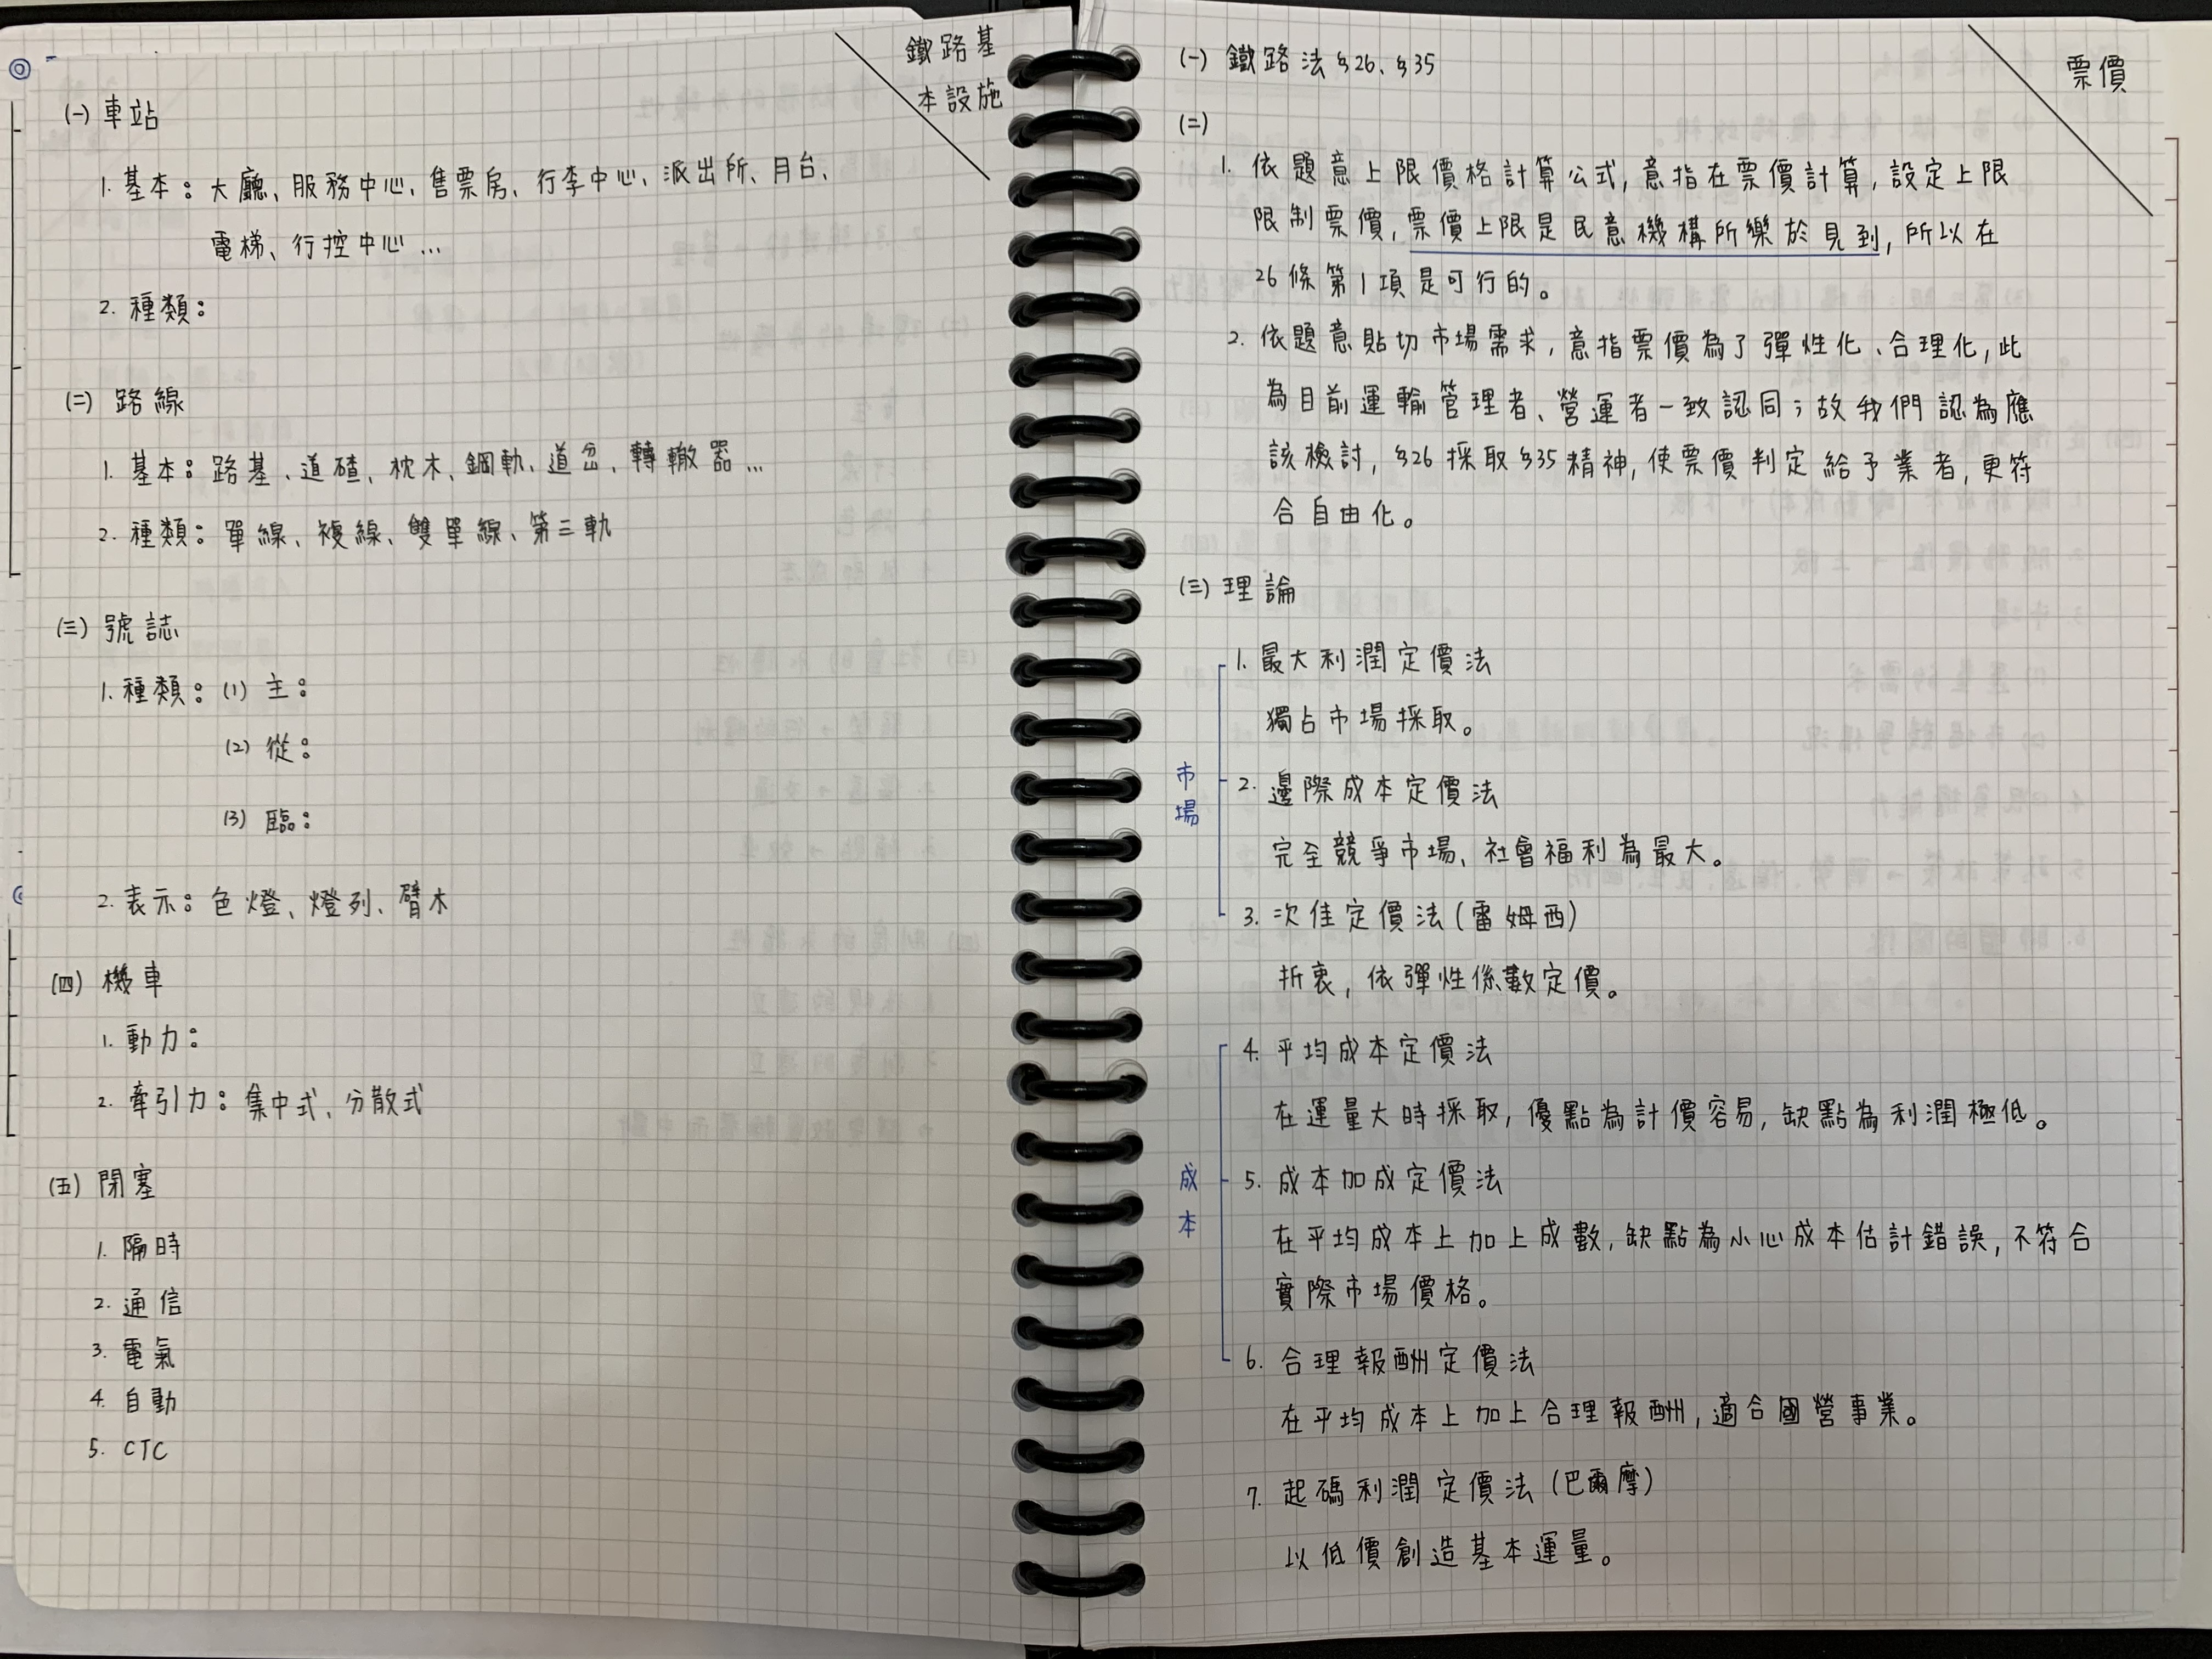 鐵路基
本設施
(一) 車站
1. 基本：大廳、服務中心、售票房、行李中心、派出所、月台、
電梯、行控中心…
2. 種類：
(二) 路線
1. 基本：路基、道碴、枕木、鋼軌、道岔、轉轍器…
2. 種類：單線、複線、雙單線、第三軌
(三) 號誌
1. 種類：(1) 主：
(2) 從：
(3) 臨：
2. 表示：色燈、燈列、臂木
(四) 機車
1. 動力：
2. 牽引力：集中式、分散式
(五) 閉塞
1. 隔時
2. 通信
3. 電氣
4. 自動
5. CTC
票價
(一) 鐵路法§26、§35
(二)
1. 依題意上限價格計算公式，意指在票價計算，設定上限
限制票價，票價上限是民意機構所樂於見到，所以在
26條第1項是可行的。
2. 依題意貼切市場需求，意指票價為了彈性化、合理化，此
為目前運輸管理者、營運者一致認同；故我們認為應
該檢討，§26採取§35精神，使票價判定給予業者，更符
合自由化。
(三) 理論
市場
1. 最大利潤定價法
獨占市場採取。
2. 邊際成本定價法
完全競爭市場、社會福利為最大。
3. 次佳定價法(雷姆西)
折衷，依彈性係數定價。
成本
4. 平均成本定價法
在運量大時採取，優點為計價容易，缺點為利潤極低。
5. 成本加成定價法
在平均成本上加上成數，缺點為小心成本估計錯誤，不符合
實際市場價格。
6. 合理報酬定價法
在平均成本上加上合理報酬，適合國營事業。
7. 起碼利潤定價法(巴爾摩)
以低價創造基本運量。